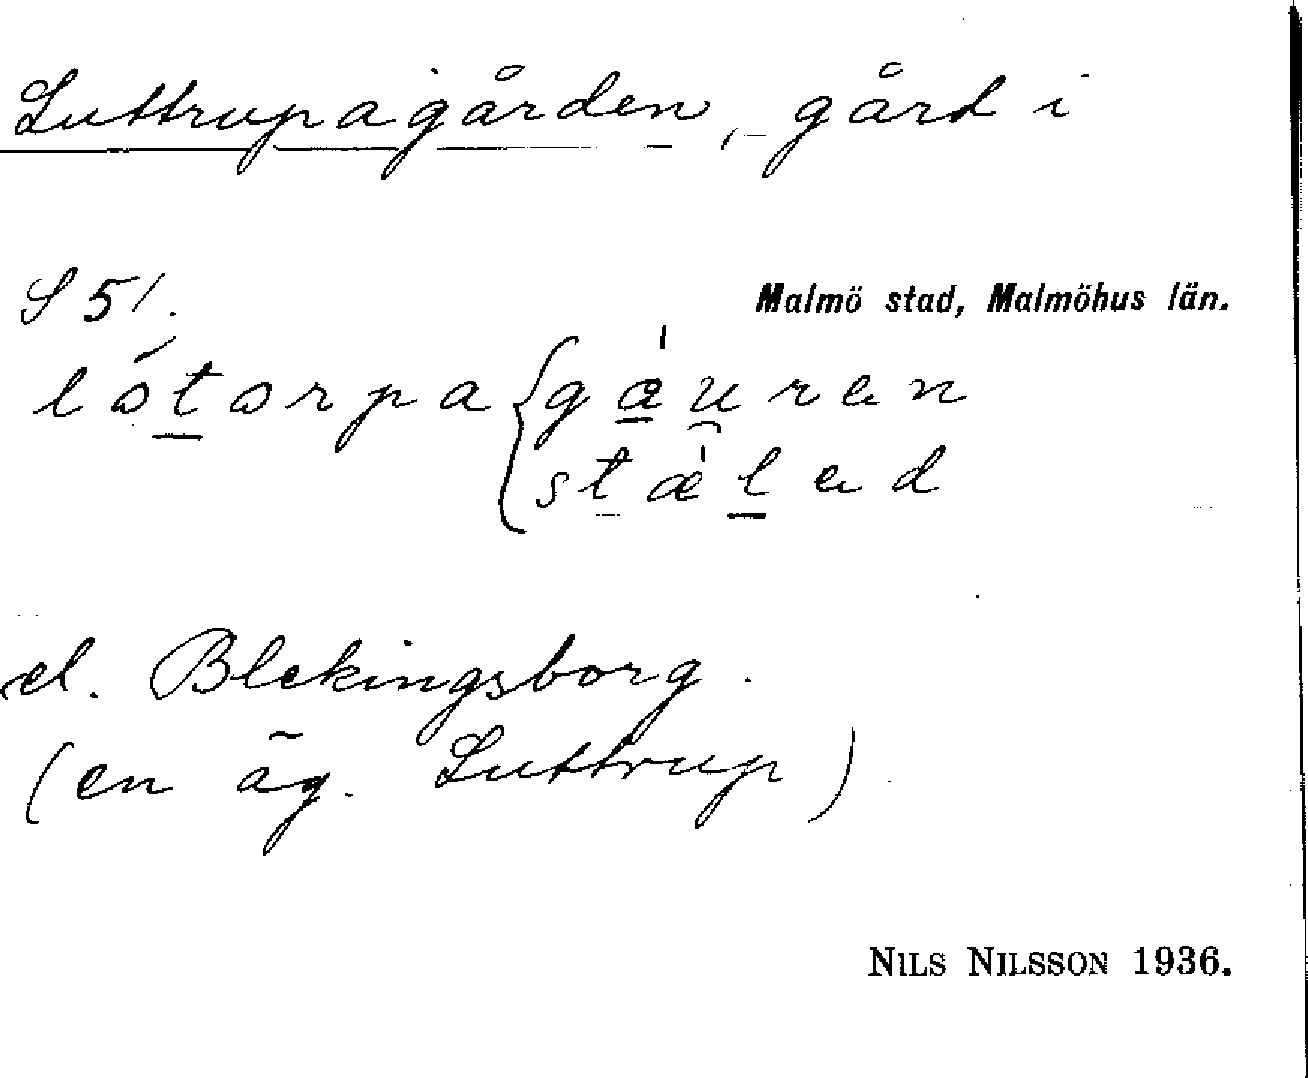 Luttrupagården, gård i
S 51.
Malmö stad, Malmöhus län.
lótorpa { gæ̀u̯ren
stæ̀led
el. Blekingsborg.
(en äg. Luttrup)
NILS NILSSON 1936.